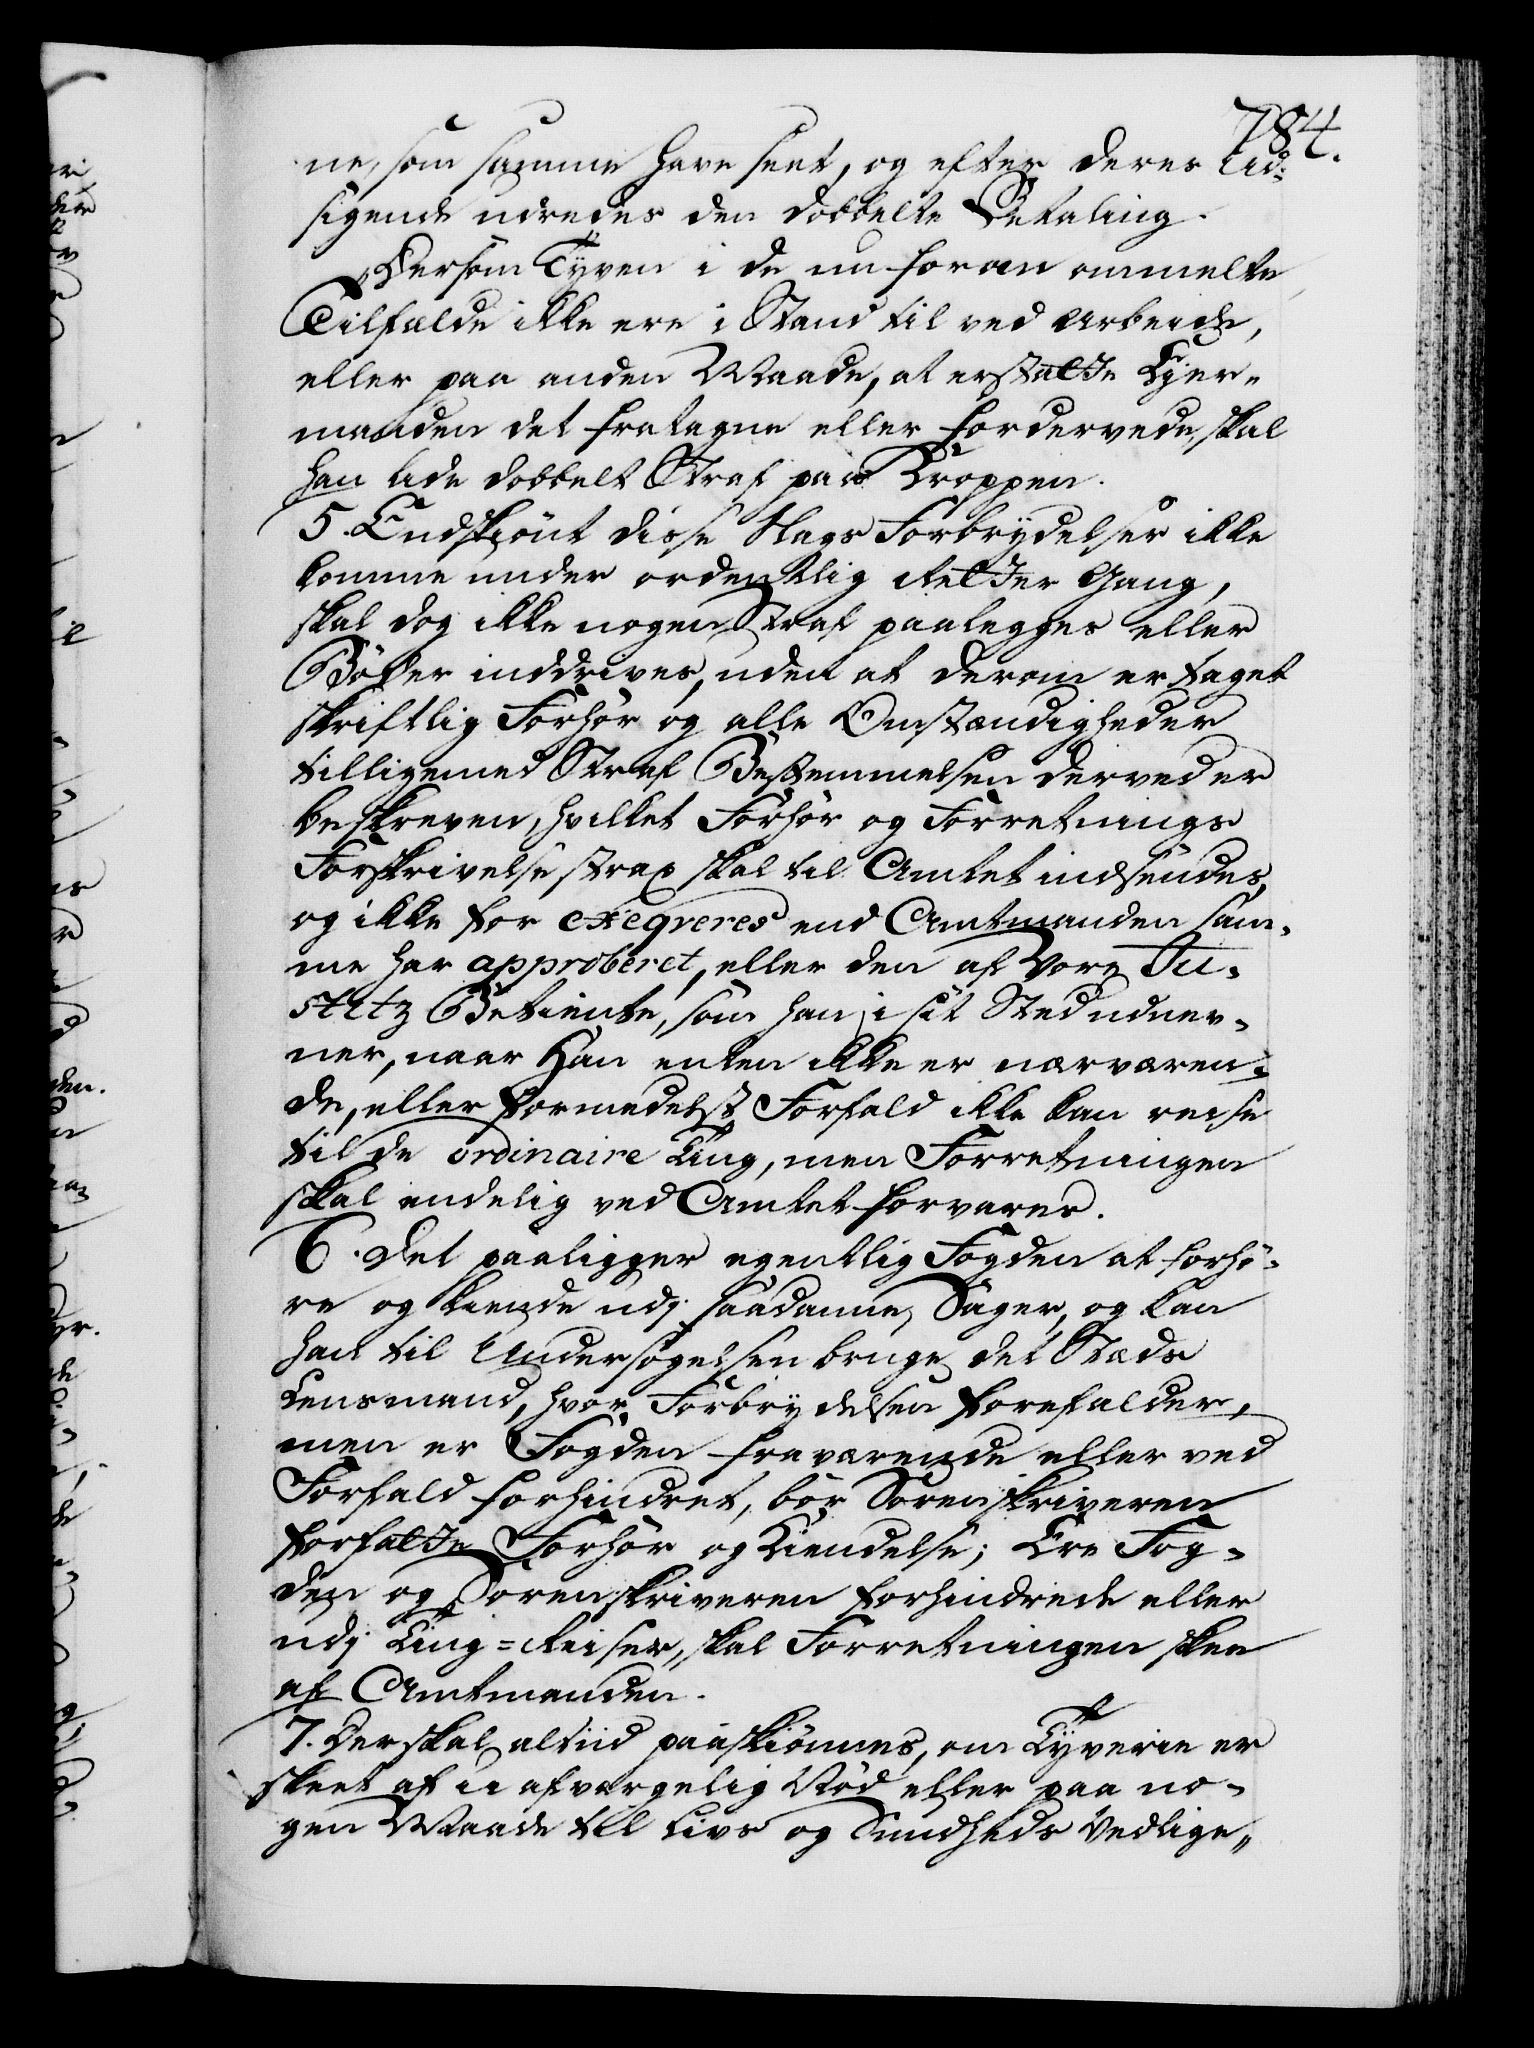 784.
ne, som samme have seet, og efter deres Ud-
sigende udredes den dobbelte Betaling.
Dersom Tyven i de nu foran ommelte
Tilfælde ikke ere i Stand til ved Arbeide,
eller paa anden Maade, at erstatte Eyer-
manden det fratagne eller fordervede, skal
han lide dobbelt Straf paa Kroppen.
5. Endskiönt disse Slags Forbrydelser ikke
komme under ordentlig Retter Gang,
skal dog ikke nogen Straf paalegges eller
Böder inddrives, uden at derom er taget
skriftlig Forhör og alle Omstændigheder
tilligemed Straf Bestemmelsen derved er
beskreven, hvilket Forhör og Forretnings
Forskrivelse strax skal til Amtet indsendes,
og ikke for exeqveres end Amtmanden sam-
me har approberet, eller den af Vore Ju-
stitz Betiente, som han i sit Sted udnev-
ner, naar Han enten ikke er nærværen-
de, eller formedelst Forfald ikke kan reise
til de ordinaire Ting, men Forretningen
skal endelig ved Amtet forvares.
6. Det paaligger egentlig Fogden at forhö-
re og kiende udj saadanne Sager, og kan
han til Undersögelsen bruge det Steds
Lensmand, hvor Forbrydelsen forefalder,
men er Fogden fraværende eller ved
Forfald forhindret, bör Sorenskriveren
forfatte Forhör og Kiendelse; Ere Fog-
den og Sorenskriveren forhindrede eller
udj Ting-Reiser, skal Forretningen skee
af Amtmanden.
7. Der skal altiid paaskiönnes, om Tyverie er
skeet af uafværgelig Nöd eller paa no-
gen Maade til Livs og Sundheds Vedlige-